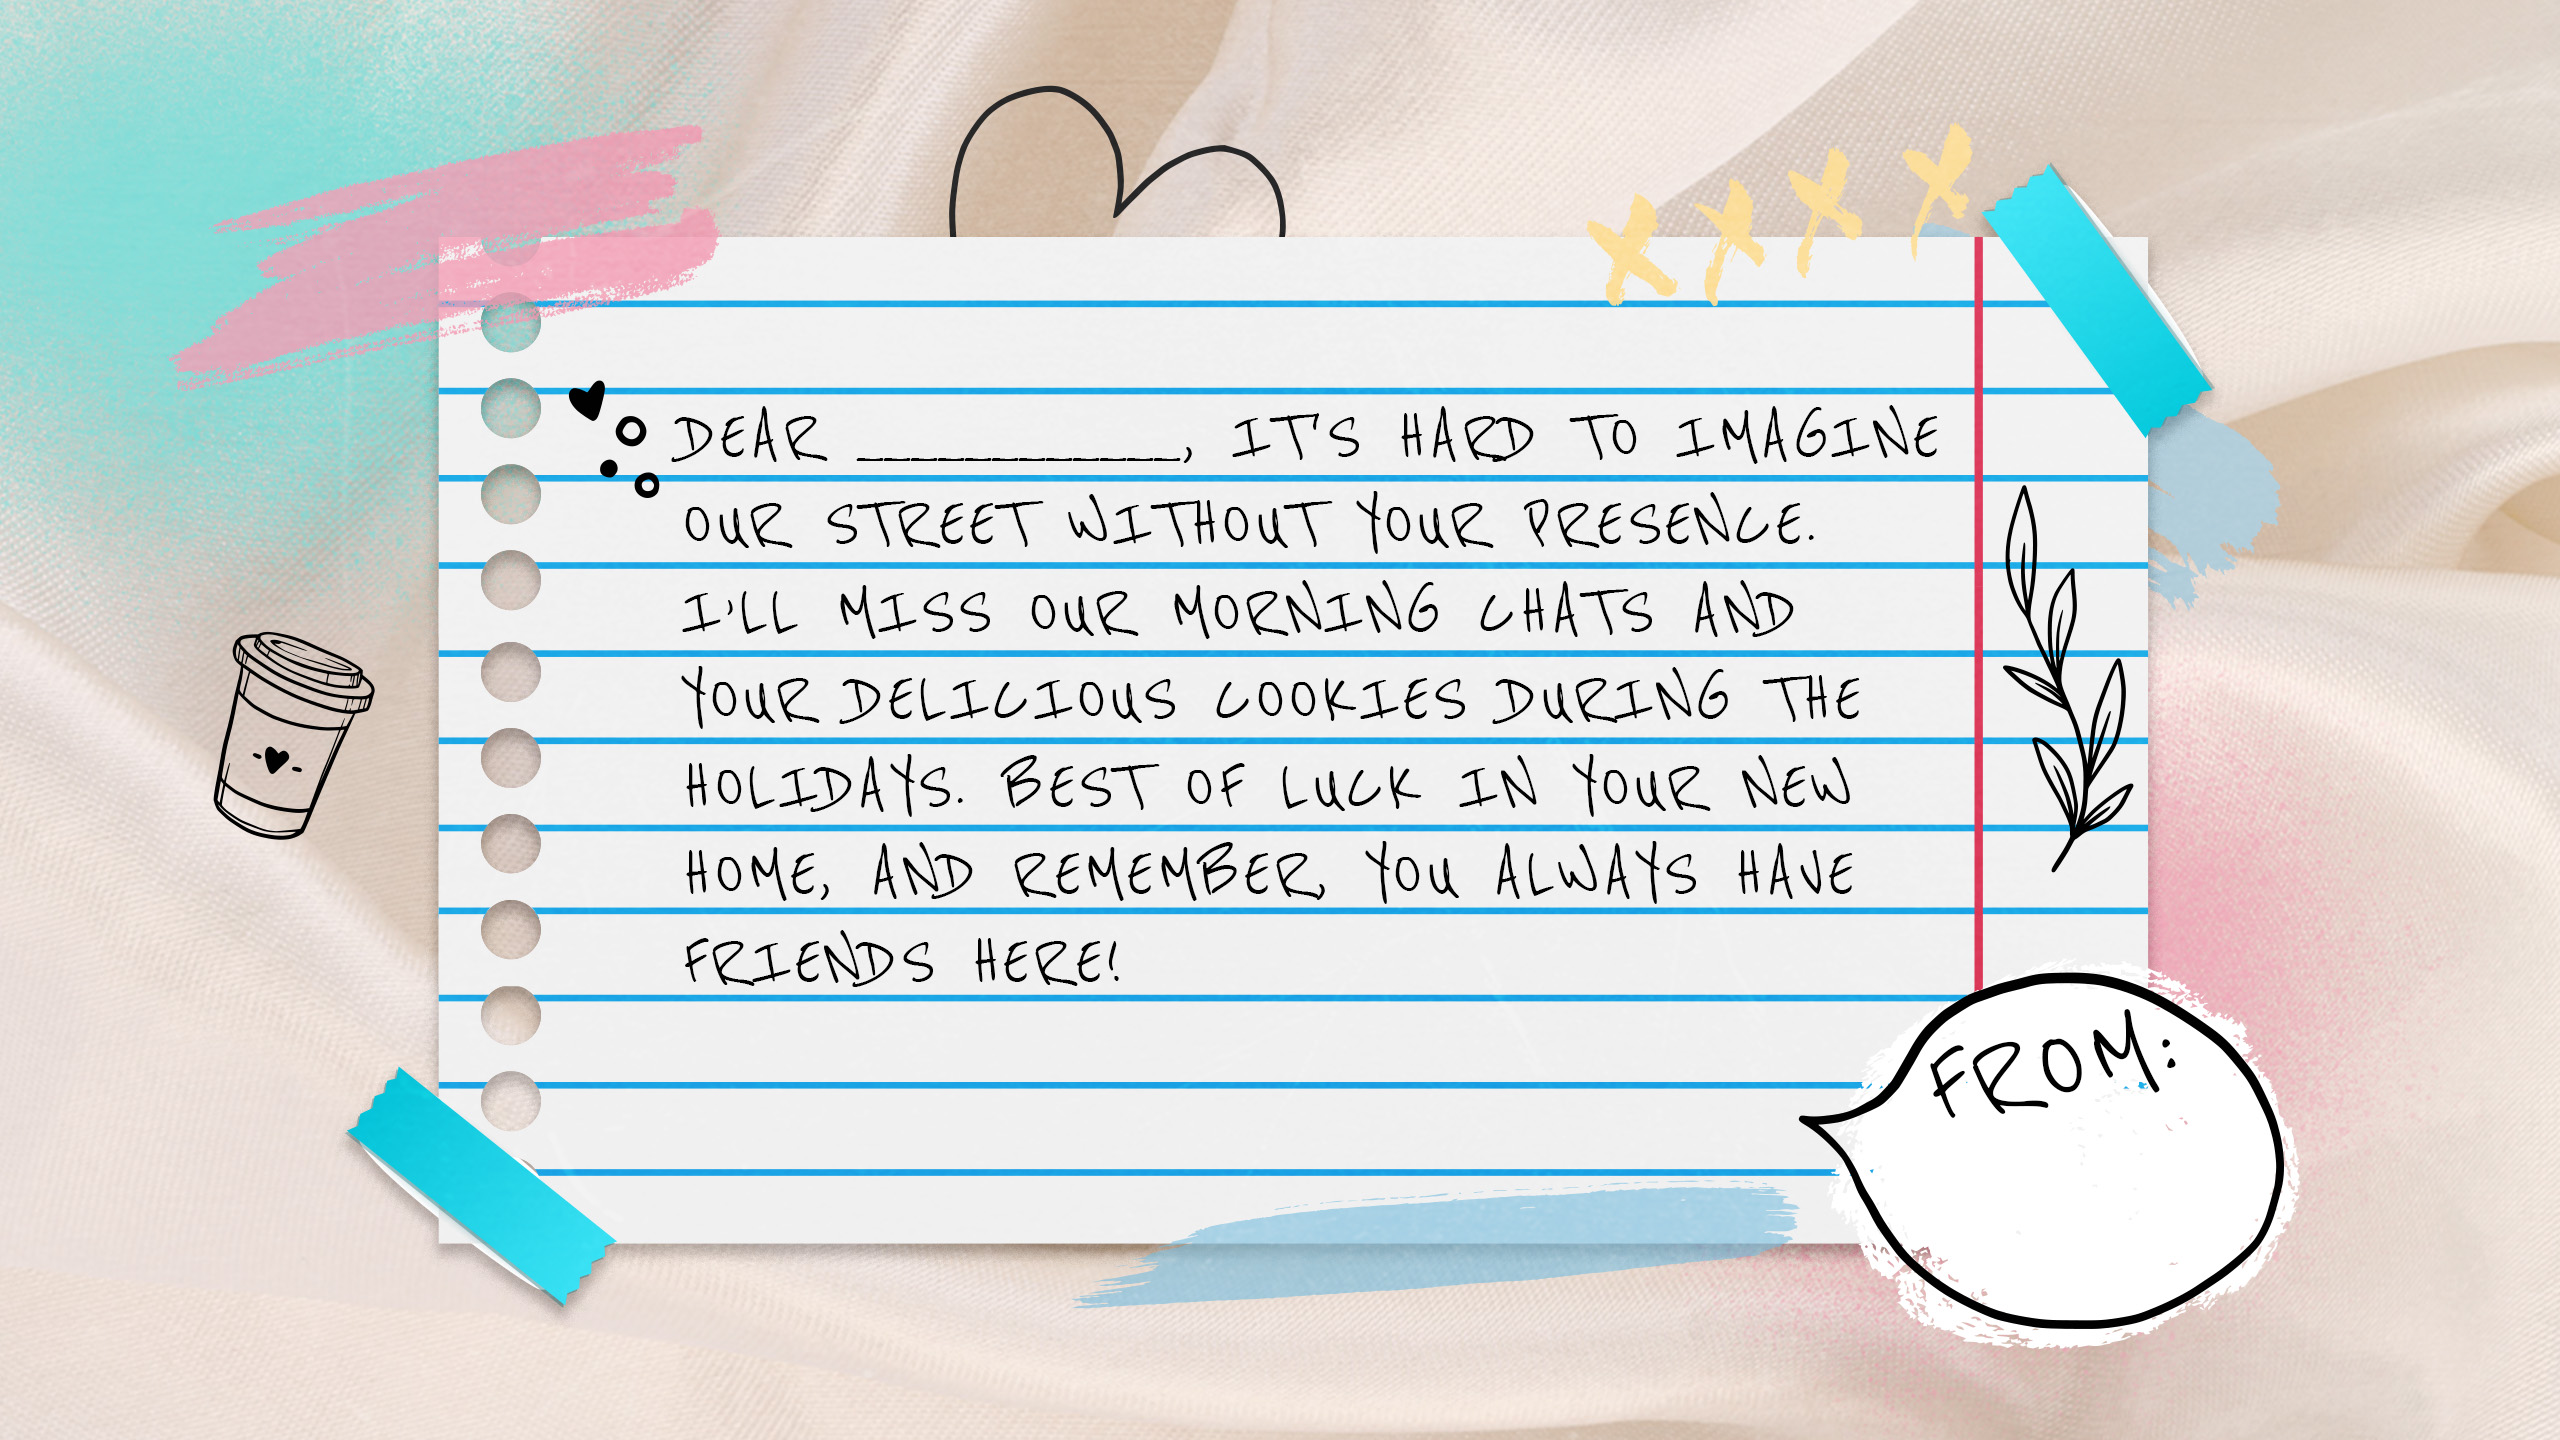 DEAR ____________, IT'S HARD TO IMAGINE
OUR STREET WITHOUT YOUR PRESENCE.
I'LL MISS OUR MORNING CHATS AND
YOUR DELICIOUS COOKIES DURING THE
HOLIDAYS. BEST OF LUCK IN YOUR NEW
HOME, AND REMEMBER, YOU ALWAYS HAVE
FRIENDS HERE!
FROM: